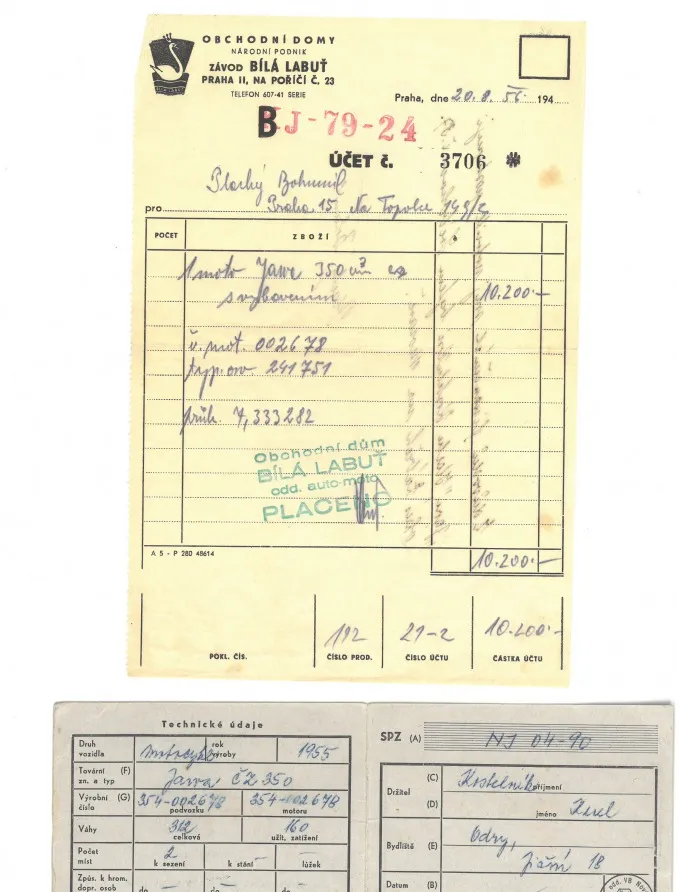 OBCHODNÍ DOMY
NÁRODNÍ PODNIK
ZÁVOD BÍLÁ LABUŤ
PRAHA II, NA POŘÍČÍ Č. 23
TELEFON 607-41 SERIE
Praha, dne 20. 8. 56. 194
B J-79-24
ÚČET č. 3706 ✱
Plachý Bohumil
pro Praha 15 Na Topolce 149/
POČET ZBOŽÍ
1 moto Jawa 350 cm³
s vybavením 10.200.-
č. mot. 002678
typ. osv 241751
průk. 7,333282
Obchodní dům
BÍLÁ LABUŤ
odd. auto-moto
PLACENO
A 5 - P 280 48614
10.200.-
192 21-2 10.200.-
POKL. ČÍS. ČÍSLO PROD. ČÍSLO ÚČTU ČÁSTKA ÚČTU
Technické údaje
Druh vozidla motocykl rok výroby 1955
Tovární (F) zn. a typ Jawa ČZ 350
Výrobní (G) číslo 354-002678 podvozku 354-002678 motoru
Váhy 312 celková 160 užit. zatížení
Počet míst 2 k sezení – k stání – lůžek
Způs. k hrom. dopr. osob do – do – do –
SPZ (A) NJ 04-90
Držitel (C) Kostelník příjmení
(D) jméno Karel
Bydliště (E) Odry,
18
Datum (B)
odd. VB